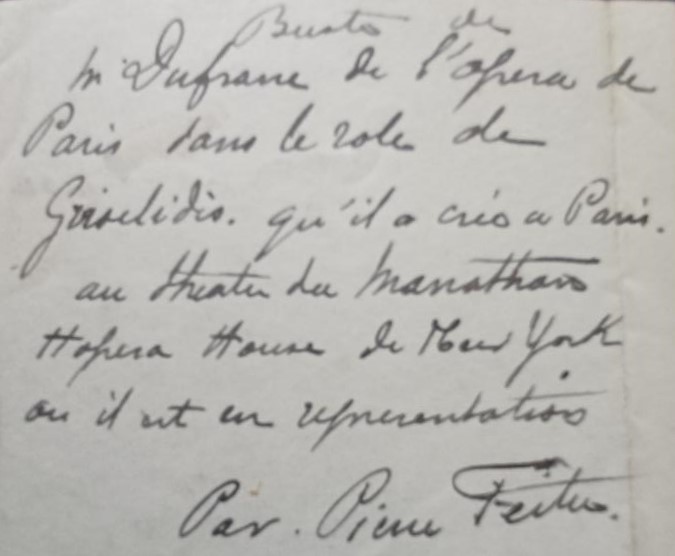 Buste de
M Dufrane de l'opera de
Paris dans le role de
Griselidis. qu'il a créo a Paris.
au theater du Manathan
Hopera House de New York
ou il est en representation
Par. Pierre Feitu.